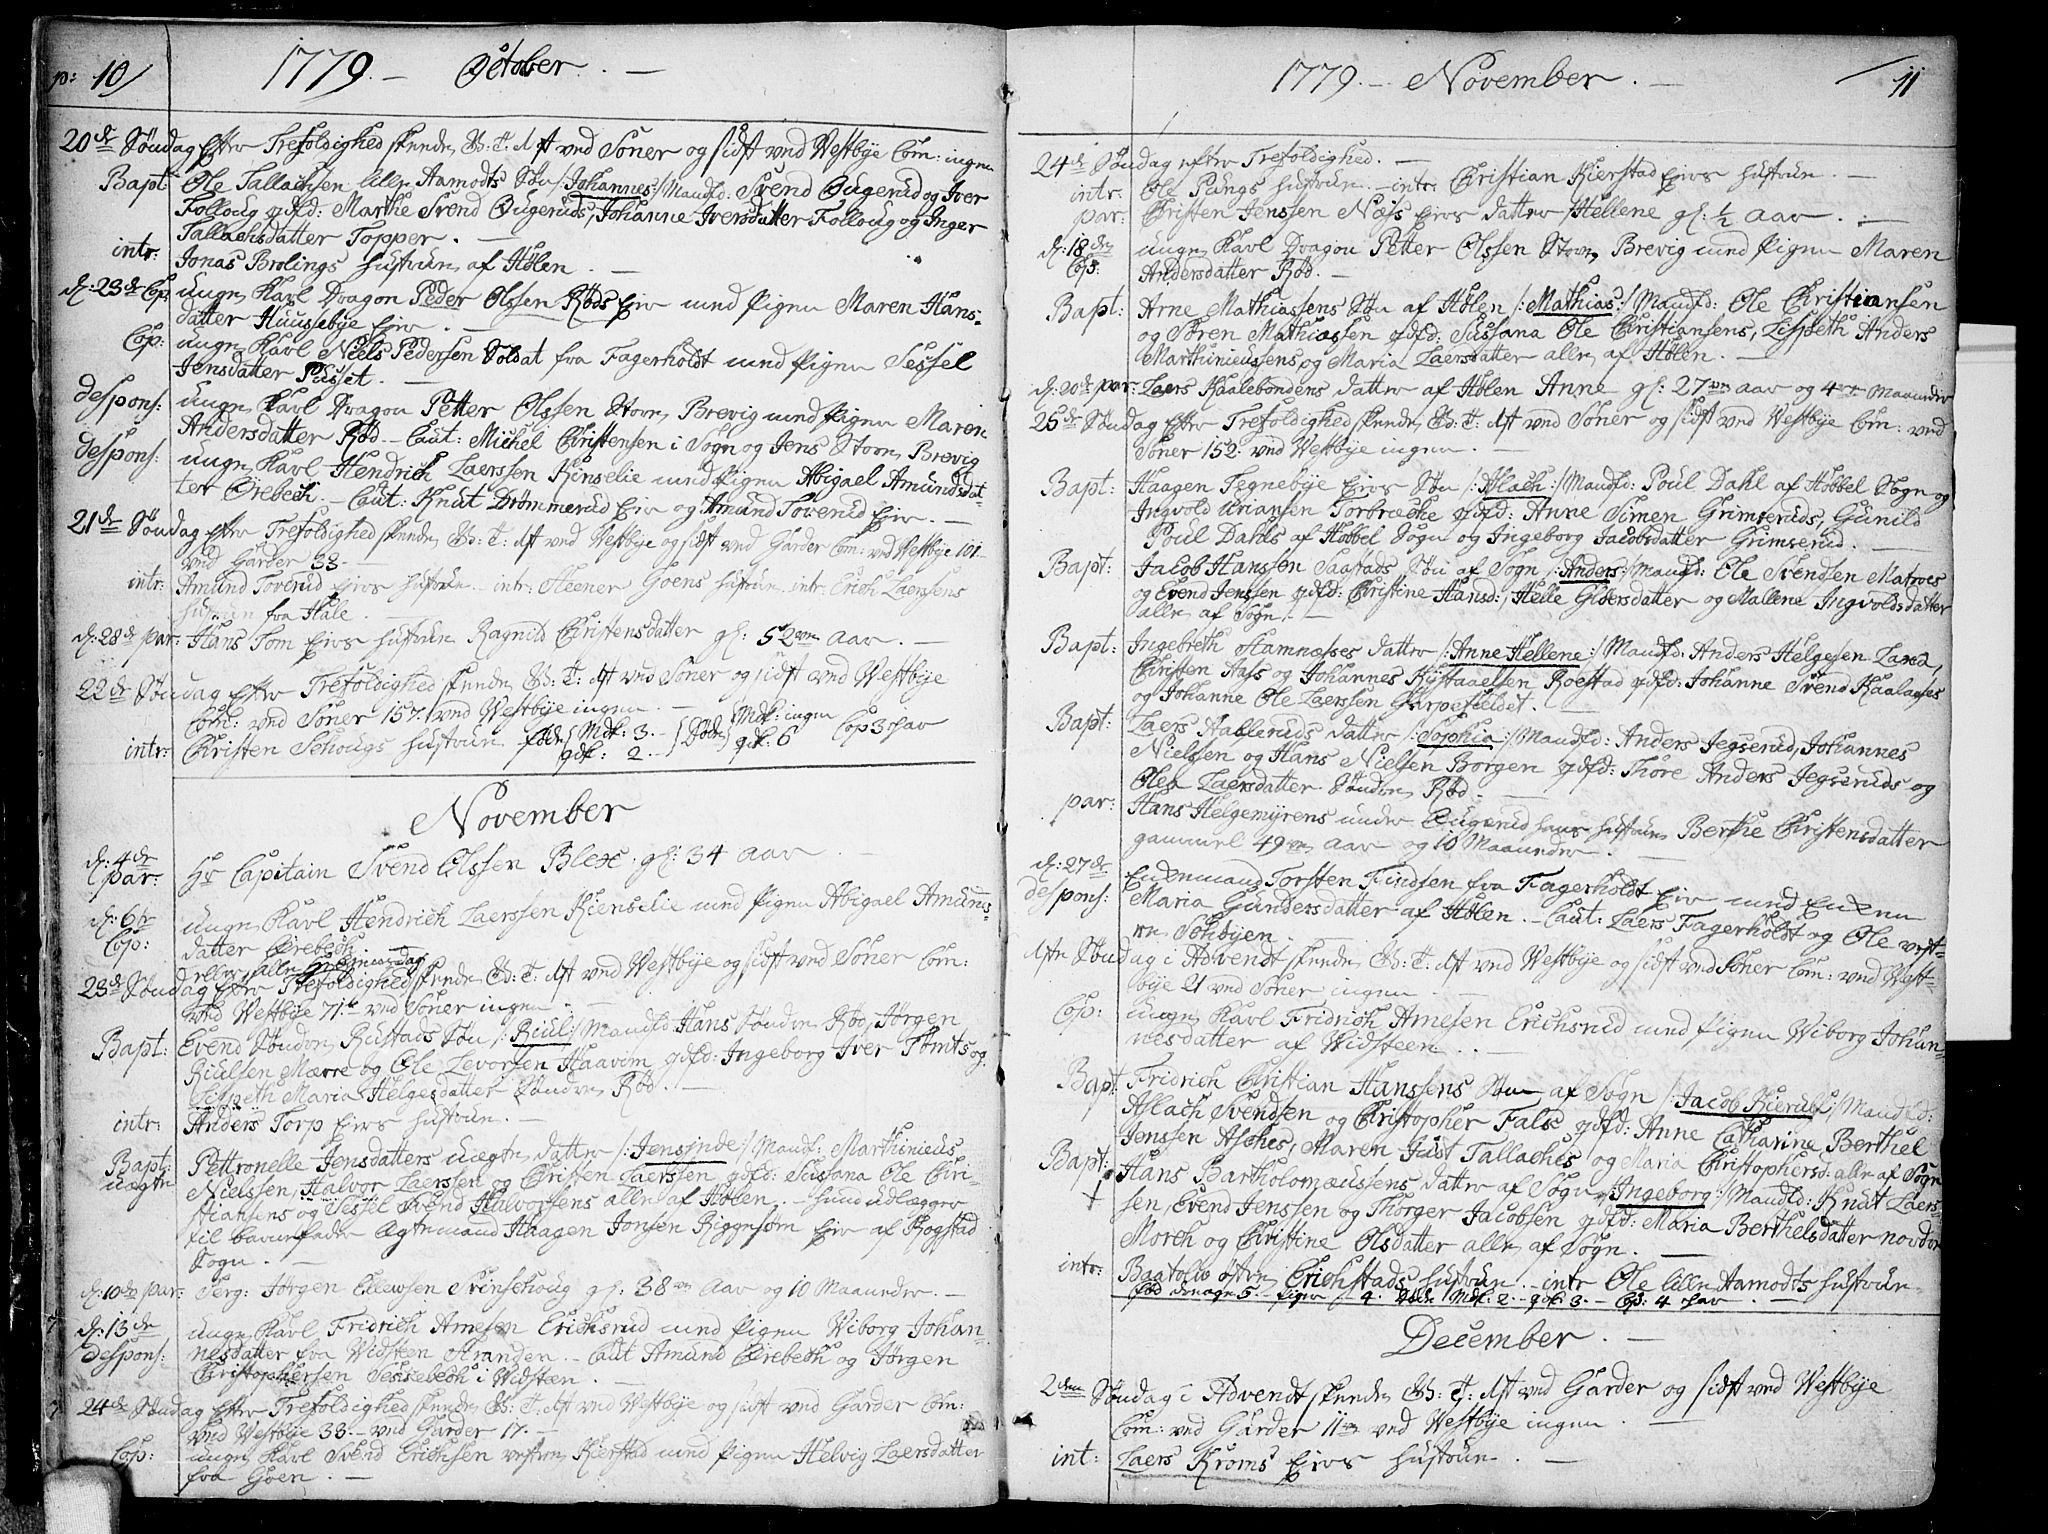 p: 10/ 1779. — October. —
20de Søndag Efter Trefoldighed skeede G: T: Ifl ved Soner og sidst ved Westbye Com: ingen
Bapt: Ole Tallachsen lille Aamodts Søn /:Johannes:/ Maudf: Svend Ougerud og Iver
Folloug qdfd: Marthe Svend Ougeruds, Johanne Iversdatter Folloug og Inger
Tallachsdatter Topper. —
intr: Jonas Brolings hustrue af Hølen —
d: 23de Cop. unge Karl Dragon Peder Olssen Røds Eier med Pigen Maren Hans-
datter Huusebye Eier. —
Cop: unge Karl Niels Pedersen Soldat fra Fagerholdt med Pigen Sessel
Jensdatter Pusset. —
despons: unge Karl Dragon Petter Olssen Store Brevig med Pigen Maren
Andersdatter Rød. — Caut: Michel Christensen i Sogn og Jens Store Brevig
despons: unge Karl Hendrich Laerssen Kinselie med Pigen Abigael Amundsdat-
ter Ørebech. — Caut: Knut Drømmerud Eier og Amund Toverud Eier. —
21de Søndag Efter Trefoldighed skeede G: T: Ifl ved Westbye og sidst ved Garder Com: ved Westbye 101-
ved Garder 33. —
intr: Amund Toverud Eiers hustrue intr: Steener Goens hustrue intr: Erich Laerssens
hustrue fra Hale. —
d: 28de par: Hans Tom Eiers hustrue Ragnild Christensdatter gl: 52 Aar. —
22de Søndag Efter Trefoldighed skeede G: T: Ifl ved Soner og sidst ved Westbye
Com: ved Soner 157. ved Westbye ingen —
intr: Christen Sehougs hustrue fødte Mdk: 3. — Døde Mdk: ingen Cop 3 Par
qdk: 2. — qdk: 6
November
d: 4de par: Hr Capitain Svend Olssen Blex. gl: 34 Aar —
d: 6te Cop: unge Karl Hendrich Laerssen Kienselie med Pigen Abigael Amunds-
datter Ørebech.
23de Søndag Efter Trefoldighed skeede G: T: Ifl ved Westbye og sidst ved Soner Com:
ved Westbye 71. ved Soner ingen —
Bapt: Evend Søndre Rustads Søn /:Riul:/ Maudfd: Hans Søndre Rød, Jørgen
Riulsen Mærre og Ole Levorsen Haavim, qdfd: Ingeborg Iver Tomts og
Lispeth Maria Helgesdatter Søndre Rød. —
intr: Anders Torp Eiers hustrue. —
Bapt: uegte Pettronelle Jensdatters uegte datter /:Jensinde:/ Maudf: Marthinius
Nielssen, Halvor Laerssen og Christen Laerssen qdfd: Susana Ole Chri-
stiansens og Sessel Svend Halvorsens alle af Hølen. — hun udlægger
til barnefader Egtemand Haagen Jonsen Riggesom Eier af Rogstad
Sogn. —
d: 10de par: Serg: Jørgen Ellevsen Svinsehoug gl: 38 Aar og 10 Maaneder. —
d: 13de despons: unge Karl Fridrich Arnesen Erichsrud med Pigen Viborg Johan-
nesdatter fra Widsteen Stranden. — Caut Amund Ørebech og Jørgen
Christophersen Sessebech i Widsteen. —
24de Søndag Efter Trefoldighed skeede G: T: Ifl ved Westbye og sidst ved Garder Com:
ved Westbye 33. — ved Garder 17. —
Cop: unge Karl Svend Erichsen vestre Kierstad med Pigen Helvig Laersdatter
fra Goen. —
1779. — November. — / 11
24de Søndag efter Trefoldighed. —
intr: Ole Pungs hustrue. — intr: Christian Kierstad Eiers hustrue. —
par: Christen Jenssen Næss Eiers datter /:Hellene gl: 1/2 Aar. —
d: 18de Cop: unge Karl Dragon Petter Olssen Store Brevig med Pigen Maren
Andersdatter Rød. —
Bapt: Arne Mathiassens Søn af Hølen /:Mathias:/ Maudfd: Ole Christiansen
og Søren Mathiassen qdfd: Susana Ole Christiansens, Lispeth Anders
Marthiniussens og Maria Laersdatter alle af Hølen. —
d: 20de par: Laers Kaalebondens datter af Hølen Anne gl: 27 Aar og 4 Maaneder
25de Søndag Efter Trefoldighed skeede G: T: Ifl ved Soner og sidst ved Westbye Com: ved
Soner 152. ved Westbye ingen. —
Bapt: Haagen Tegnebye Eiers Søn /:Aslach:/ Maudfd: Poul Dahl af Hobbel Sogn og
Ingvold Ariansen Torbrecke qdfd: Anne Simen Grimseruds, Gunild
Poul Dahls af Hobbel Sogn og Ingeborg Jacobsdatter Grimserud. —
Bapt: Jacob Hanssen Saastads Søn af Sogn /:Anders:/ Maudfd: Ole Svendsen Matroes
og Evend Jenssen qdfd: Christine Hansd:, Helle Gidersdatter og Mallene Ingvoldsdatter
alle af Sogn. —
Bapt: Ingebreth Stamnesses datter /:Anne Hellene:/ Maudfd: Anders Helgesen Land,
Christen Aas og Johannes Kystaaelsen Roestad qdfd: Johanne Svend Kaalaases
og Johanne Ole Laerssen Skarpefieldet. —
Bapt: Laers Hableruds datter /:Sophia:/ Maudfd: Anders Jegserud, Johannes
Nielssen og Hans Nielsen Borgen qdfd: Thore Anders Jegseruds og
Olea Laersdatter Søndre Rød. —
par: Hans Helgemyrens under Ougerud hans hustrue Berthe Christensdatter
gammel 49 Aar og 10 Maaneder. —
d: 27de despons: Enkemand Torsten Findsen fra Fagerholdt Eier med Enken
Maria Gundersdatter af Hølen. — Caut: Laers Fagerholdt og Ole vest-
re Sohbyen. —
1ste Søndag i Advendt skeede G: T: Ifl ved Westbye og sidst ved Soner Com: ved West-
bye 21 ved Soner ingen. —
Cop: unge Karl Fridrich Arnesen Erichsrud med Pigen Viborg Johan-
nesdatter af Widsteen. —
Bapt: Fridrich Christian Hanssens Søn af Sogn /:Jacob Kierulf:/ Maudfd:
Aslach Svendsen og Christopher Fals qdfd: Anne Catharine Berthel
Jenssen Asches, Maren Just Tallaches og Maria Christophersd: alle af Sogn
Bapt: † Hans Bartholomæussens datter af Sogn /:Ingeborg:/ Maudfd: Knut Laers-
sen, Evend Jenssen og Thorger Jacobsen qdfd: Maria Berthelsdatter nordre
Morch og Christine Olsdatter alle af Sogn. —
intr: Baatolv østre Erichstads hustrue. — intr Ole lille Aamodts hustrue
fød drenge 5. — Piger 4. Døde Mdk: 2. — qdk: 3. — Cop: 4 Par —
December. —
2den Søndag i Advendt skeede G: T: Ifl ved Garder og sidst ved Westbye
Com: ved Garder 11 ved Westbye ingen. —
int: Laers Kroms Eiers hustrue. —